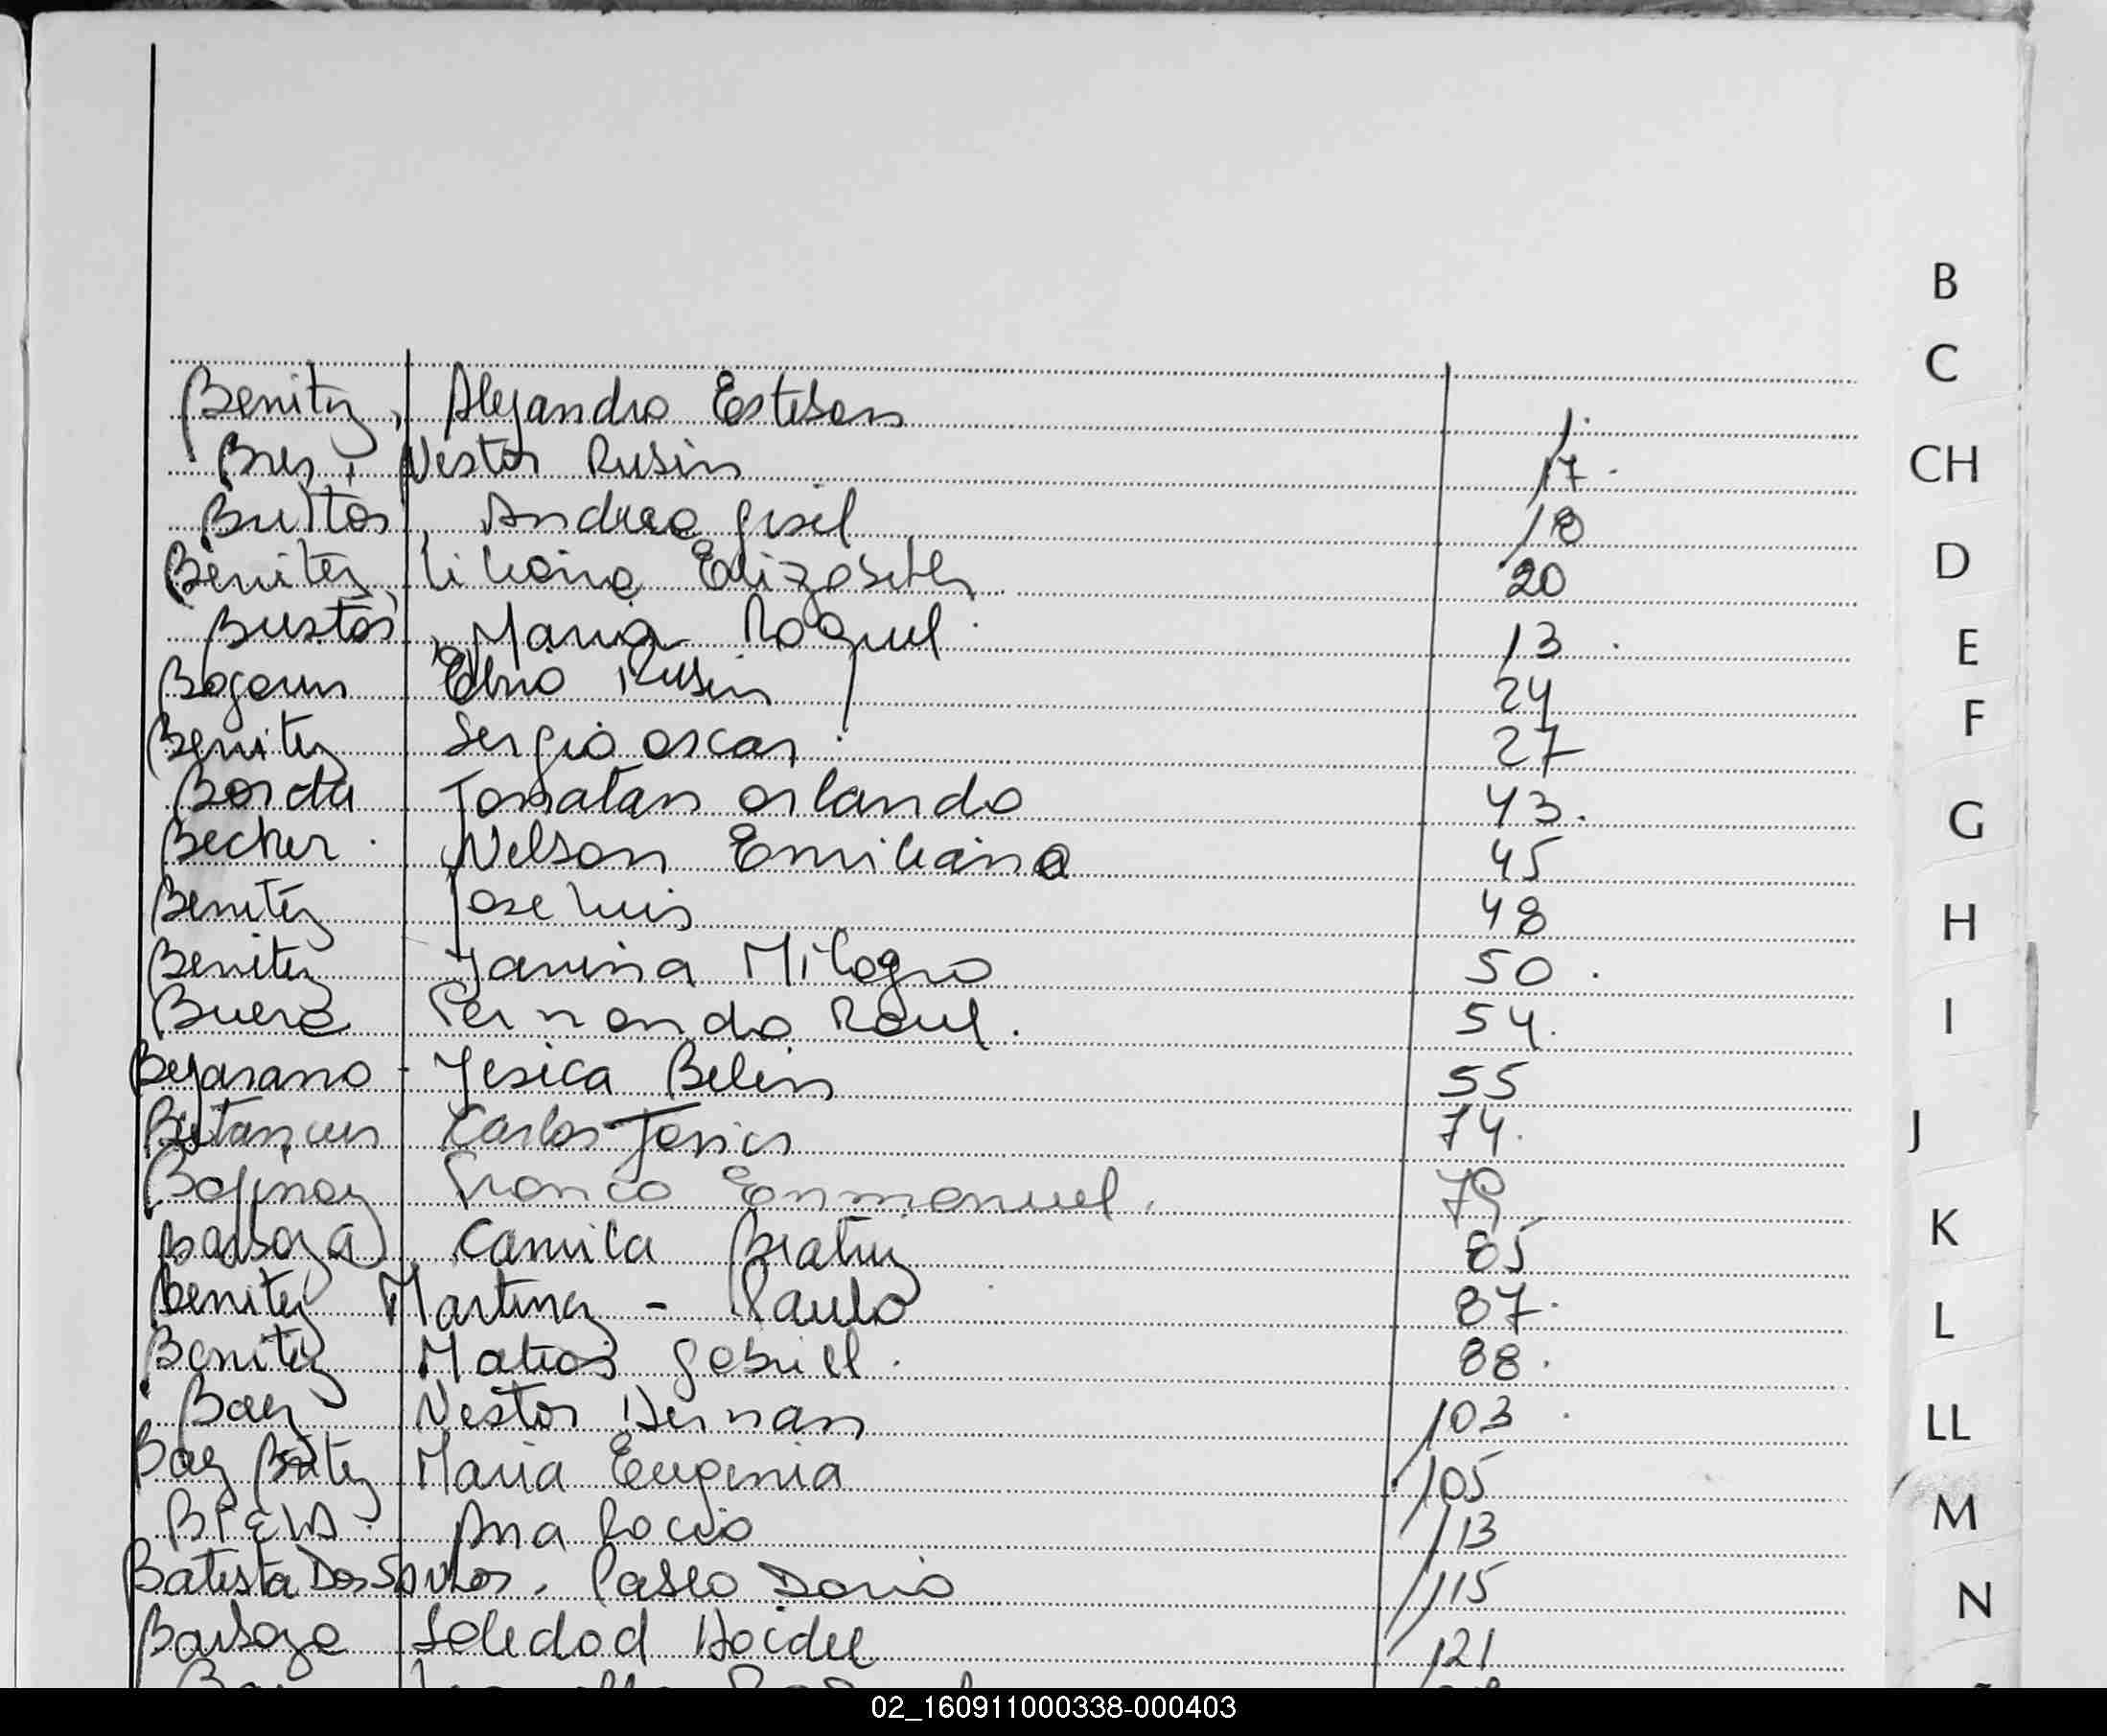 B
C
CH
D
E
F
G
H
I
J
K
L
LL
M
N
Benitez, Alejandro Esteban 1.
Bres, Nestor Rubén 17.
Bustos, Andrea Gisel 18
Benitez, Liliana Elizabeth 20
Bustos, Maria Raquel 13.
Bogarin Elvio Ruben 24
Benitez Sergio Oscar 27
Borda Jonatan Orlando 43.
Becker Nelson Emiliano 45
Benitez Jose Luis 48
Benitez Yanina Milagro 50.
Buera Fernando Raul. 54.
Bejarano - Yesica Belen 55
Betancur Carlos Javier 74.
Franco Emmanuel. 79
Barboza Camila Beatriz 85
Benitez Martinez - Paulo 87.
Benitez Matias Gabriel. 88.
Baez Nestor Hernan 103.
Baez Britez Maria Eugenia 105
Ana Rocio 113
Batista Dos Santos, Pablo Dario 115
Barboza Soledad Haidee 121
02_160911000338-000403